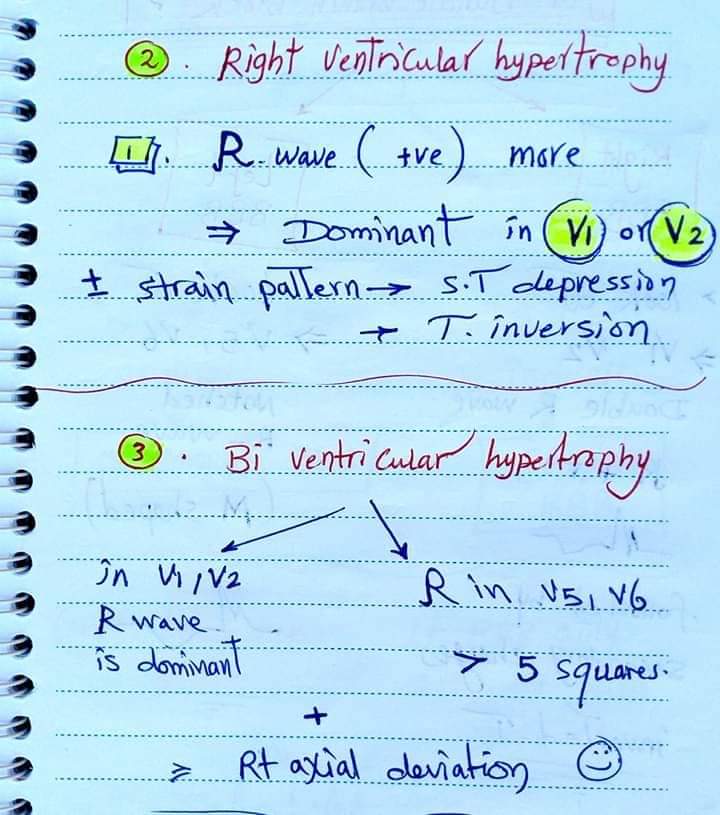 2. Right ventricular hypertrophy
1. R wave (+ve) more
⇒ Dominant in V1 or V2
± strain pattern → S.T depression
→ T. inversion
3. Bi ventricular hypertrophy
in V1, V2 R in V5, V6
R wave
is dominant > 5 squares.
+
≥ Rt axial deviation ☺